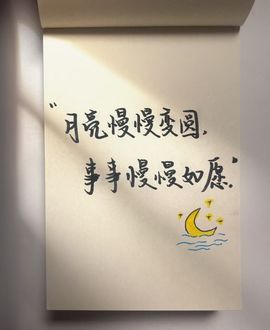 “月亮慢慢变圆，
事事慢慢如愿。”